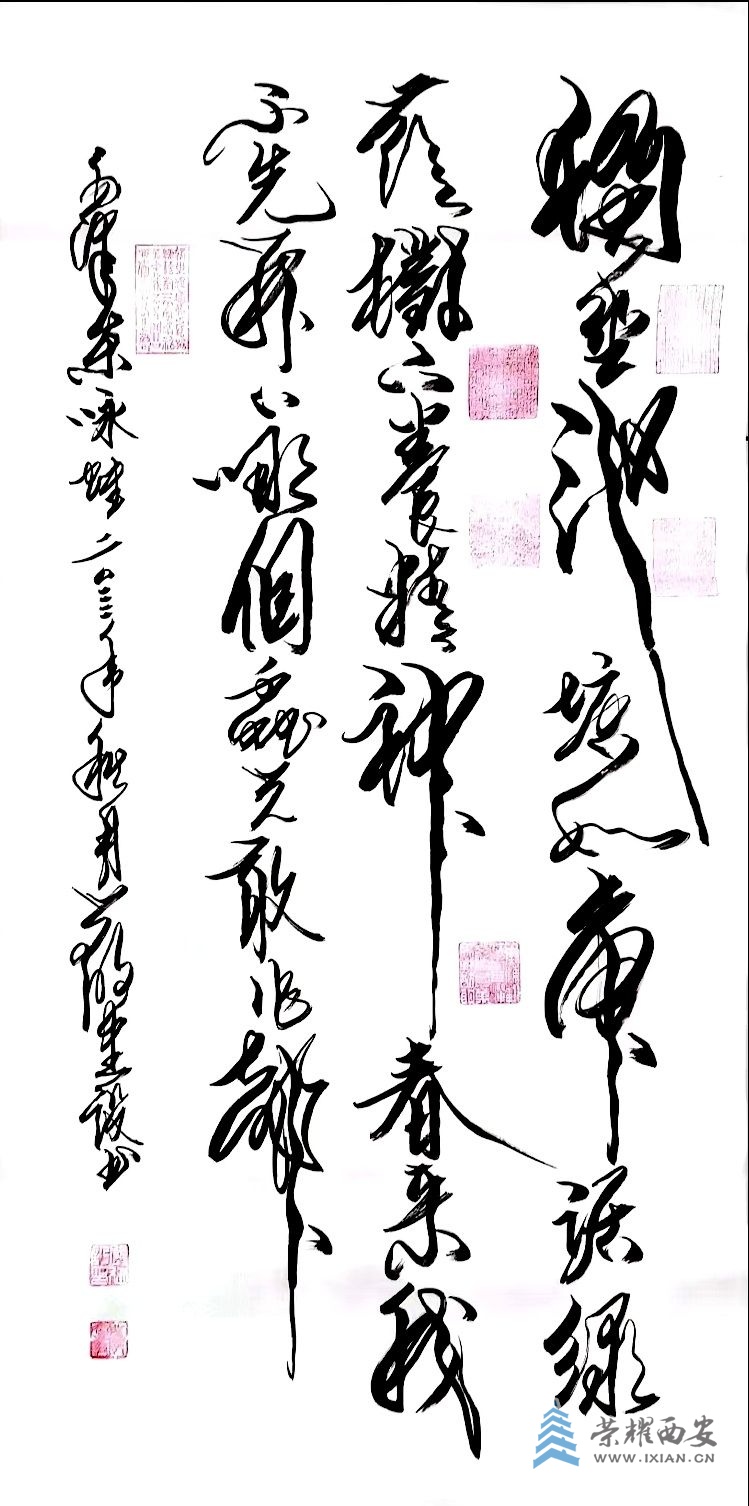 獨坐池塘如虎踞綠
蔭樹下養精神春來我
不先開口哪個蟲兒敢作聲
毛澤東咏蛙二〇二三年秋月建設书
荣耀西安
WWW.IXIAN.CN